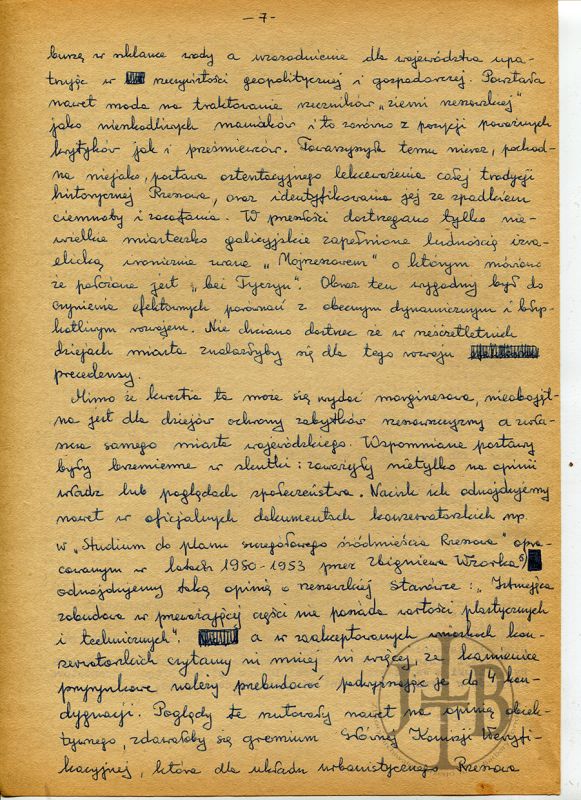 — 7 —
burzę w szklance wody a uzasadnienie dla województwa upa-
trując w rzeczywistości geopolitycznej i gospodarczej. Powstała
nawet moda na traktowanie rzeczników „ziemi rzeszowskiej"
jako nieszkodliwych maniaków i to zarówno z pozycji poważnych
krytyków jak i prześmiewców. Towarzyszyła temu nieraz, pochod-
na niejako, postawa ostentacyjnego lekceważenia całej tradycji
historycznej Rzeszowa, oraz identyfikowania jej ze spadkiem
ciemnoty i zacofania. W przeszłości dostrzegano tylko nie-
wielkie miasteczko galicyjskie zapełnione ludnością izra-
elicką, ironicznie zwane „Mojżeszowem" o którym mówiono
że położone jest „bei Tyczyn". Obraz ten wygodny był do
czynienia efektownych porównań z obecnym dynamicznym i błys-
kotliwym rozwojem. Nie chciano dostrzec że w sześćsetletnich
dziejach miasta znalazłyby się dla tego rozwoju
precedensy.
Mimo że kwestia ta może się wydać marginesowa, nieobojęt-
na jest dla dziejów ochrony zabytków rzeszowszczyzny a zwła-
szcza samego miasta wojewódzkiego. Wspomniane postawy
były brzemienne w skutki: zaważyły nietylko na opinii
władz lub poglądach społeczeństwa. Nacisk ich odnajdujemy
nawet w oficjalnych dokumentach konserwatorskich np.
w „Studium do planu szczegółowego śródmieścia Rzeszowa" opra-
cowanym w latach 1950-1953 przez Zbigniewa Wzorka⁶)
odnajdujemy taką opinię o rzeszowskiej starówce: „Istniejąca
zabudowa w przeważającej części nie posiada wartości plastycznych
i technicznych". a w zaakceptowanych wnioskach kon-
serwatorskich czytamy ni mniej ni więcej, że kamienice
przyrynkowe należy przebudować podwyższając je do 4 kon-
dygnacji. Poglądy te rzutowały nawet na opinię obiek-
tywnego, zdawałoby się gremium Głównej Komisji Weryfi-
kacyjnej, która dla układu urbanistycznego Rzeszowa
JHB